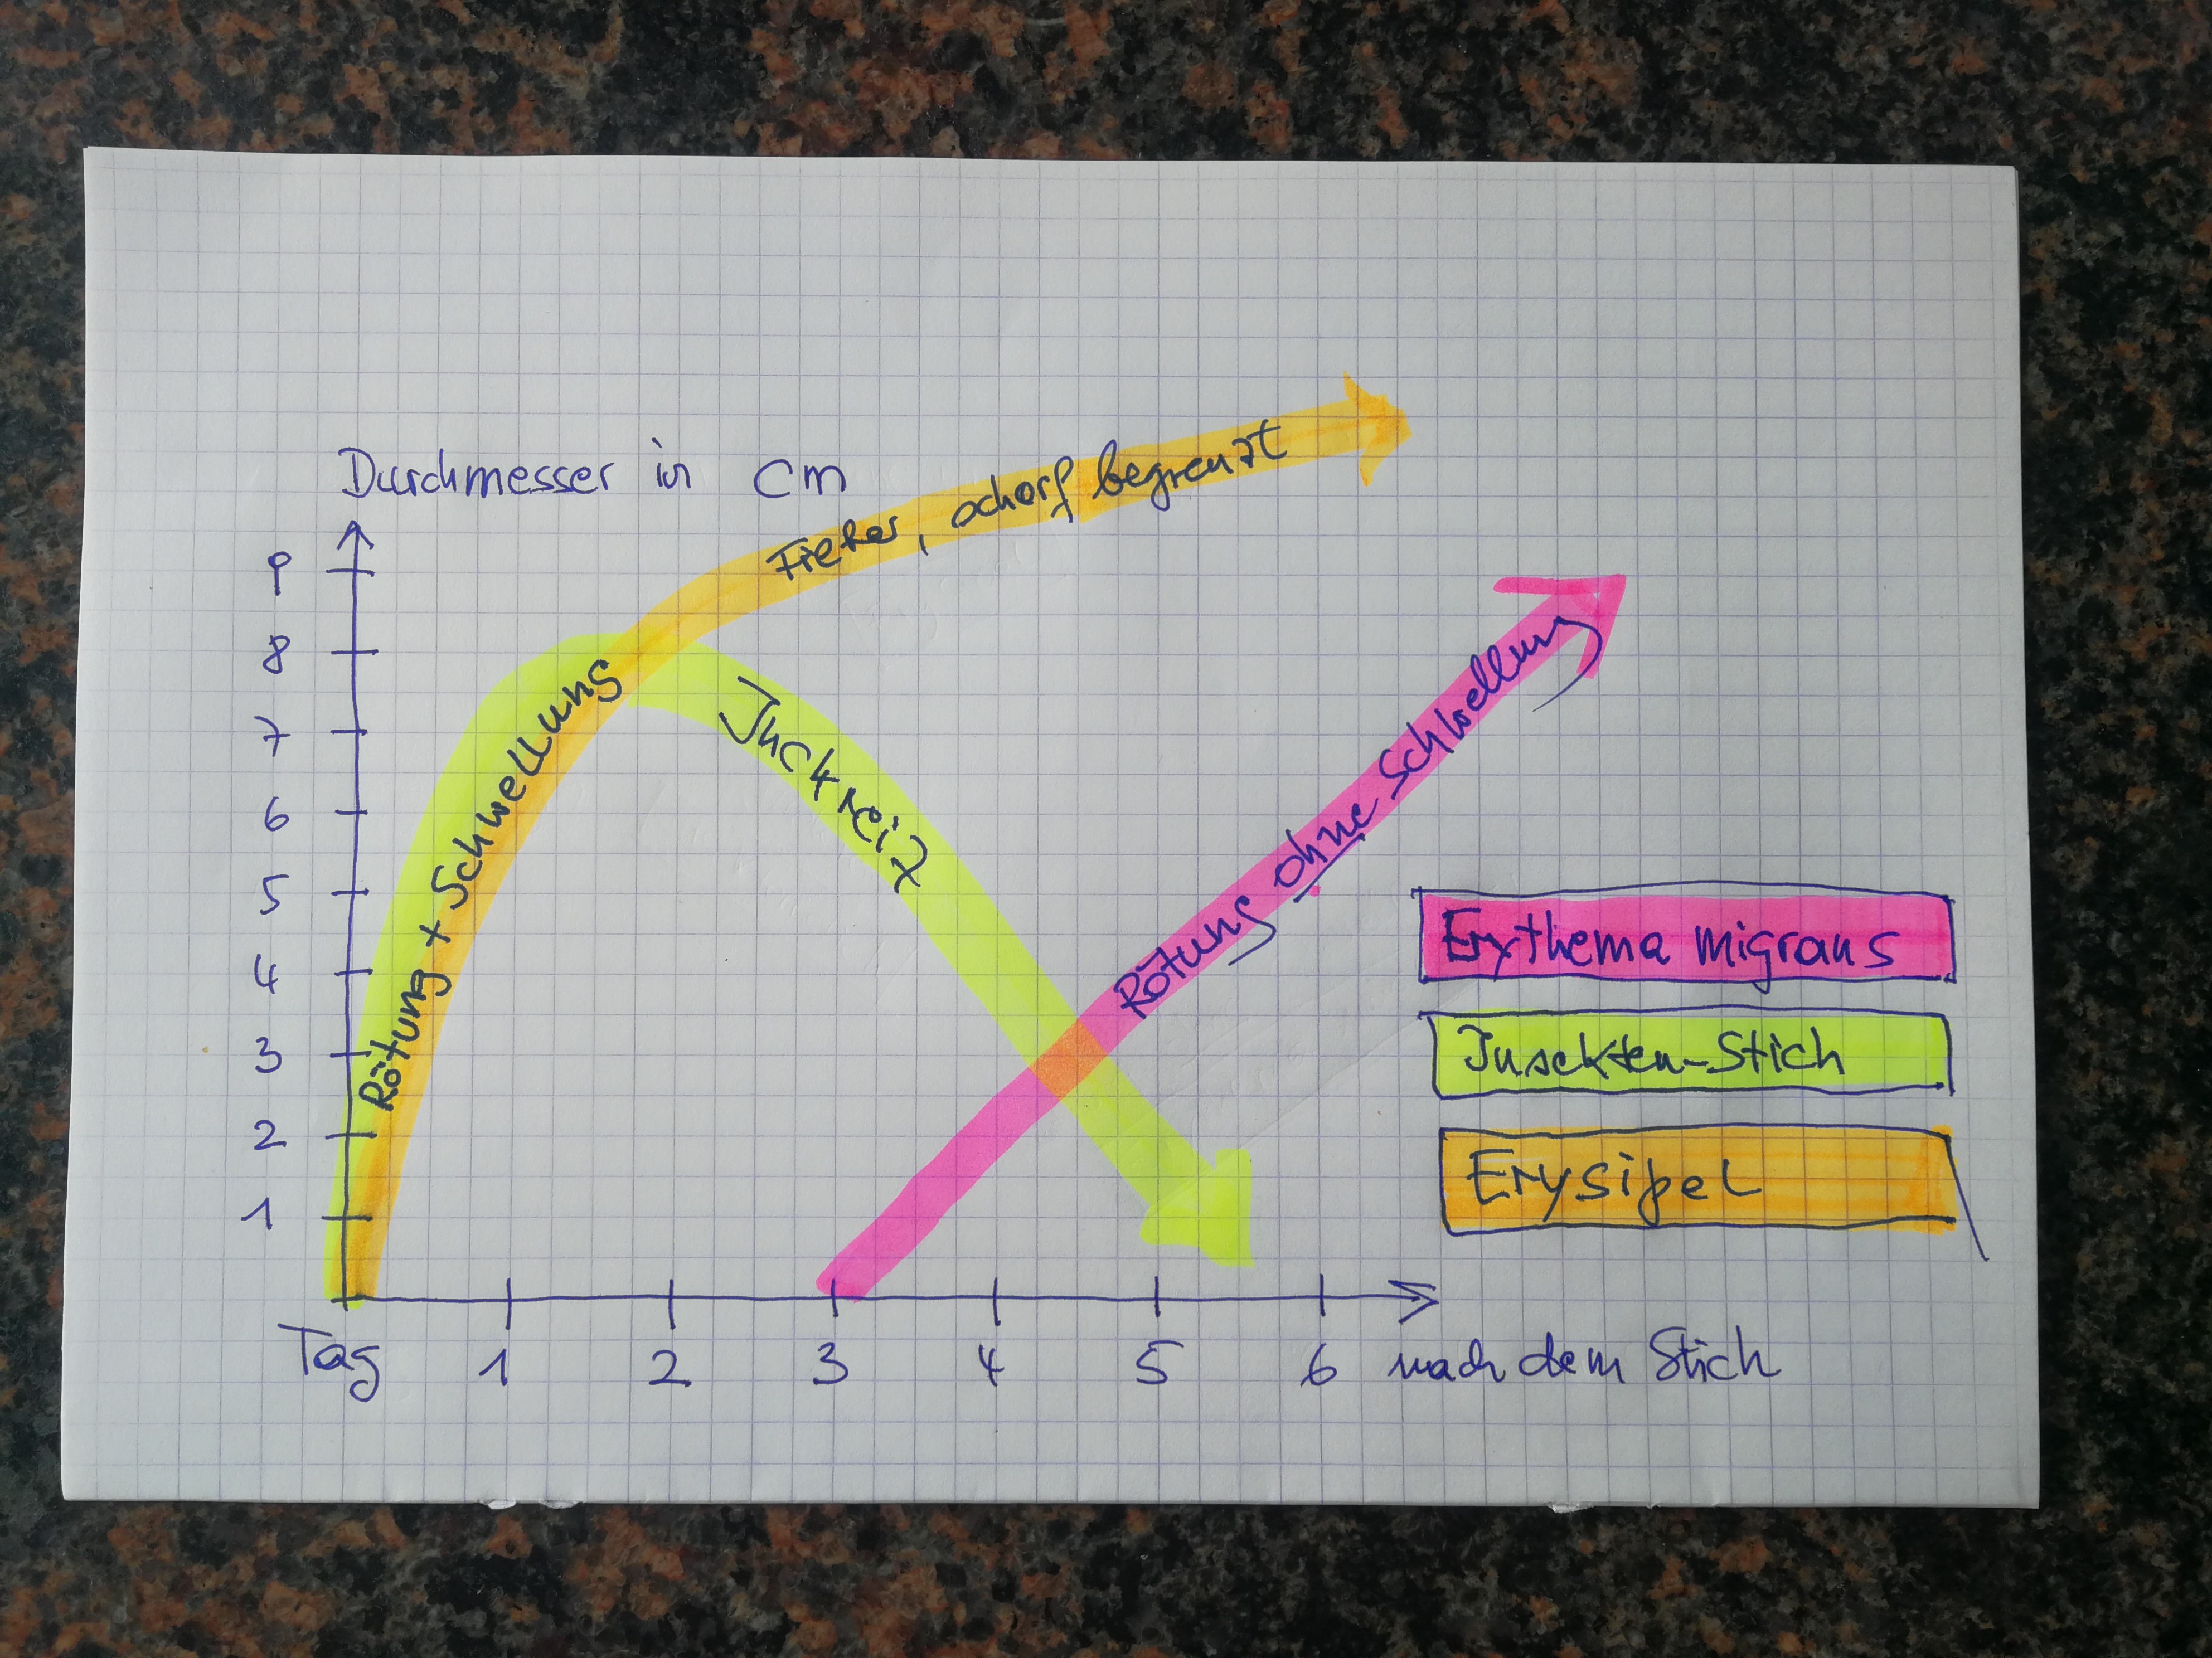 Durchmesser in cm
9
8
7
6
5
4
3
2
1
Rötung + Schwellung
Fieber, scharf begrenzt
Juckreiz
Rötung ohne Schwellung
Erythema migrans
Insekten-Stich
Erysipel
Tag 1 2 3 4 5 6 nach dem Stich